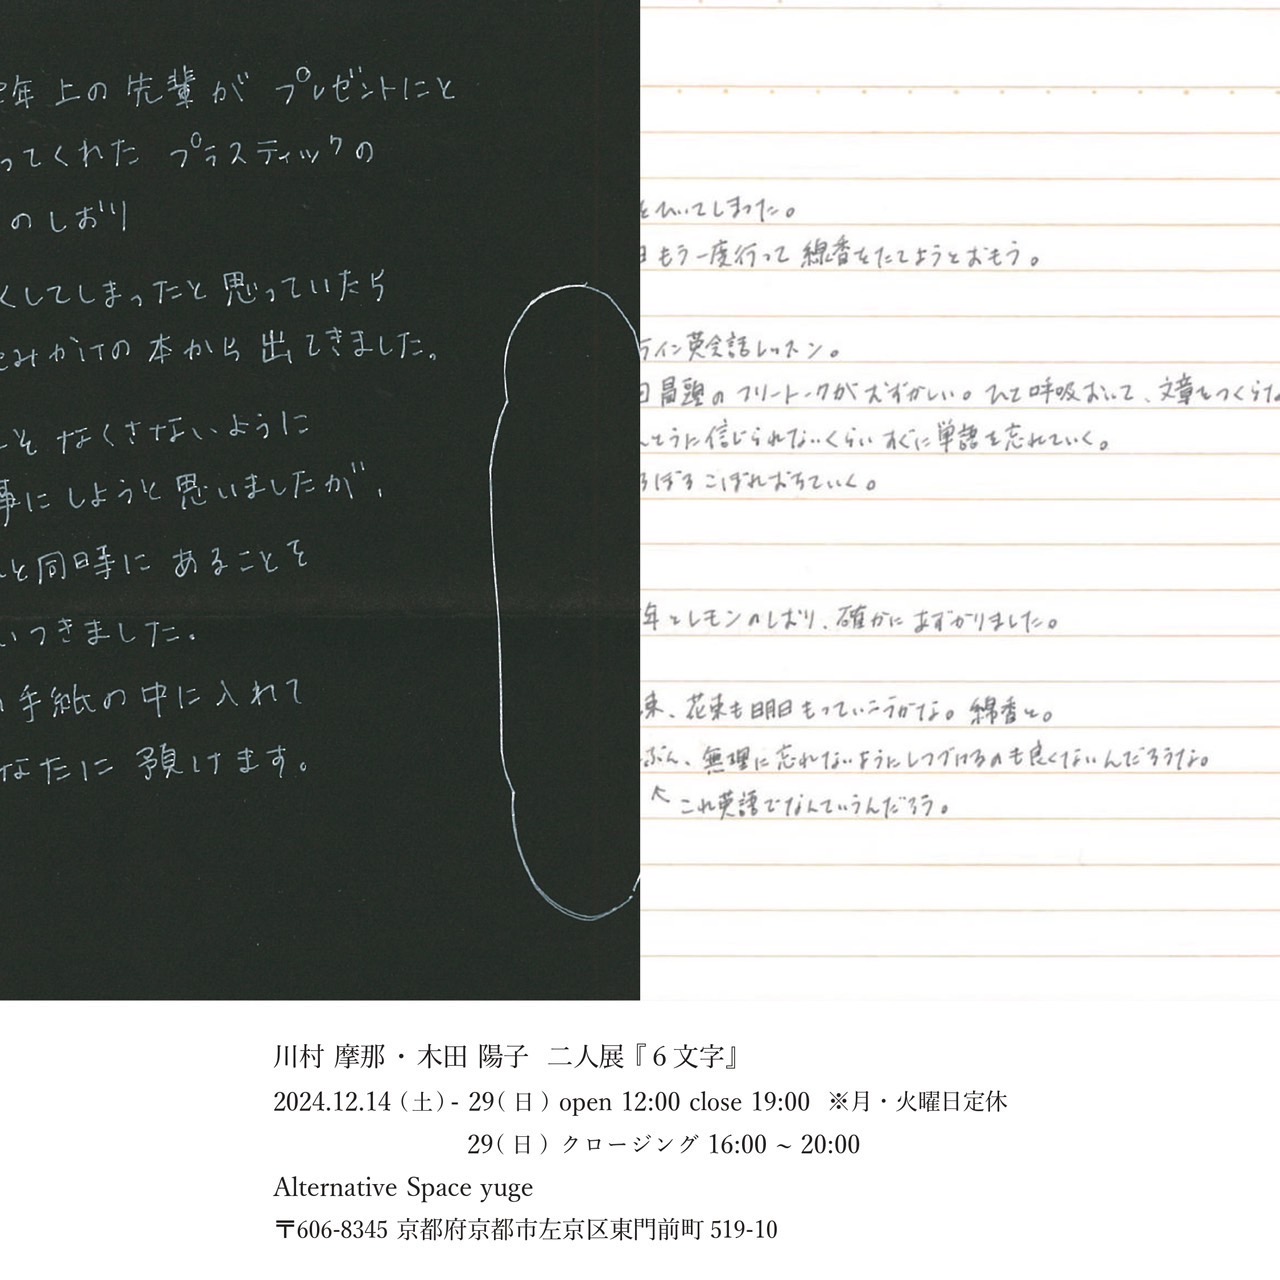 年上の先輩が プレゼントにと
ってくれた プラスティックの
のしおり
くしてしまったと思っていたら
みかけの本から出てきました。
そ なくさないように
事にしようと思いましたが、
と同時に あることを
いつきました。
手紙の中に入れて
なたに 預けます。
をひいてしまった。
もう一度行って 線香をたてようとおもう。
ライン英会話レッスン。
日冒頭の フリートークがむずかしい。ひと呼吸おいて、文章をつくらな
んとうに信じられないくらい すぐに単語を忘れていく。
ろぼろ こぼれおちていく。
年とレモンのしおり、確かに あずかりました。
束、花束も明日もっていこうかな。線香と。
ぶん、無理に忘れないようにしつづけるのも良くないんだろうな。
これ英語でなんていうんだろう。
川村 摩那・木田 陽子 二人展『6文字』
2024.12.14（土）- 29（日）open 12:00 close 19:00 ※月・火曜日定休
29（日）クロージング 16:00 ~ 20:00
Alternative Space yuge
〒606-8345 京都府京都市左京区東門前町 519-10